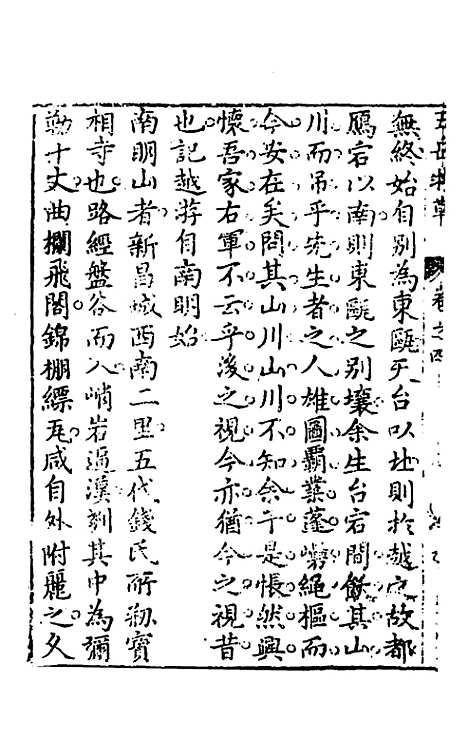 五岳游草 卷之四
無終始自別為東甌天台以北則於越之故都
鴈宕以南則東甌之別壤余生台宕間飲其山
川而吊乎先生者之人雄圖霸業蓬嶼繩樞而
今安在矣問其山川山川不知余于是悵然興
懷吾家右軍不云乎後之視今亦猶今之視昔
也記越游自南明始
南明山者新昌城西南二里五代錢氏所剏寶
相寺也路經盤谷而入峭岩逼漢刳其中為彌
勒十丈曲欄飛閣錦棚縹瓦咸自外附麗之久